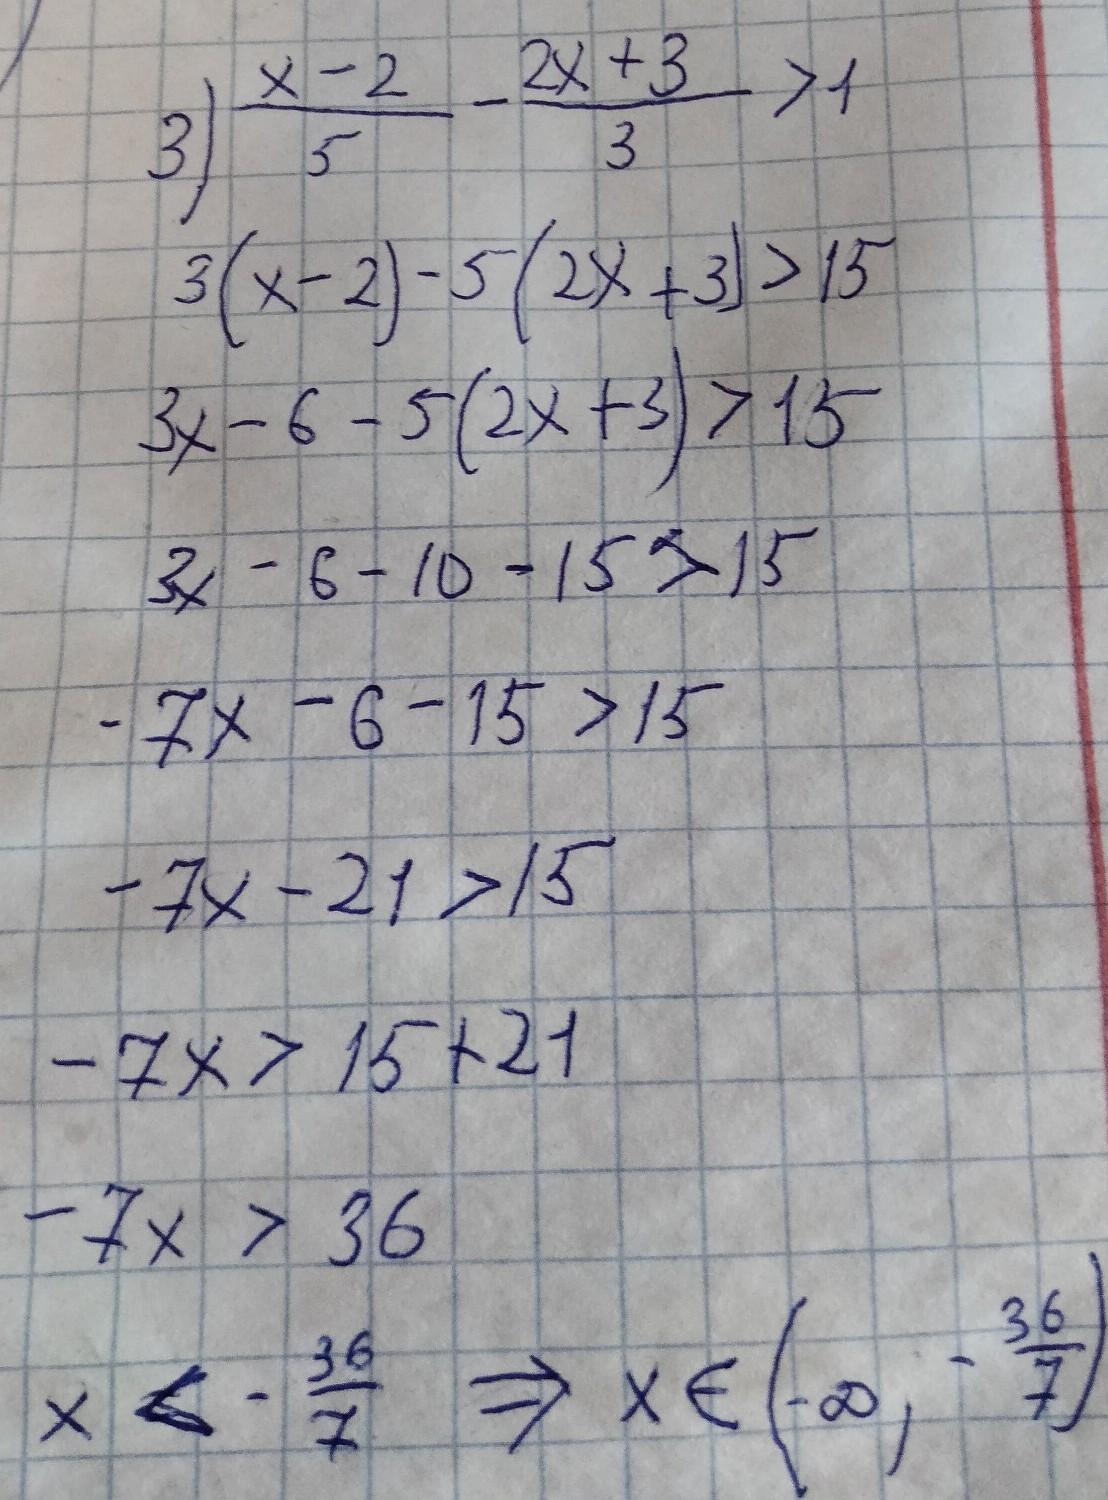 3) (x-2)/5 - (2x+3)/3 > 1
3(x-2)-5(2x+3)>15
3x-6-5(2x+3)>15
3x-6-10-15>15
-7x-6-15>15
-7x-21>15
-7x>15+21
-7x>36
x<-36/7 ⇒ x∈(-∞, -36/7)